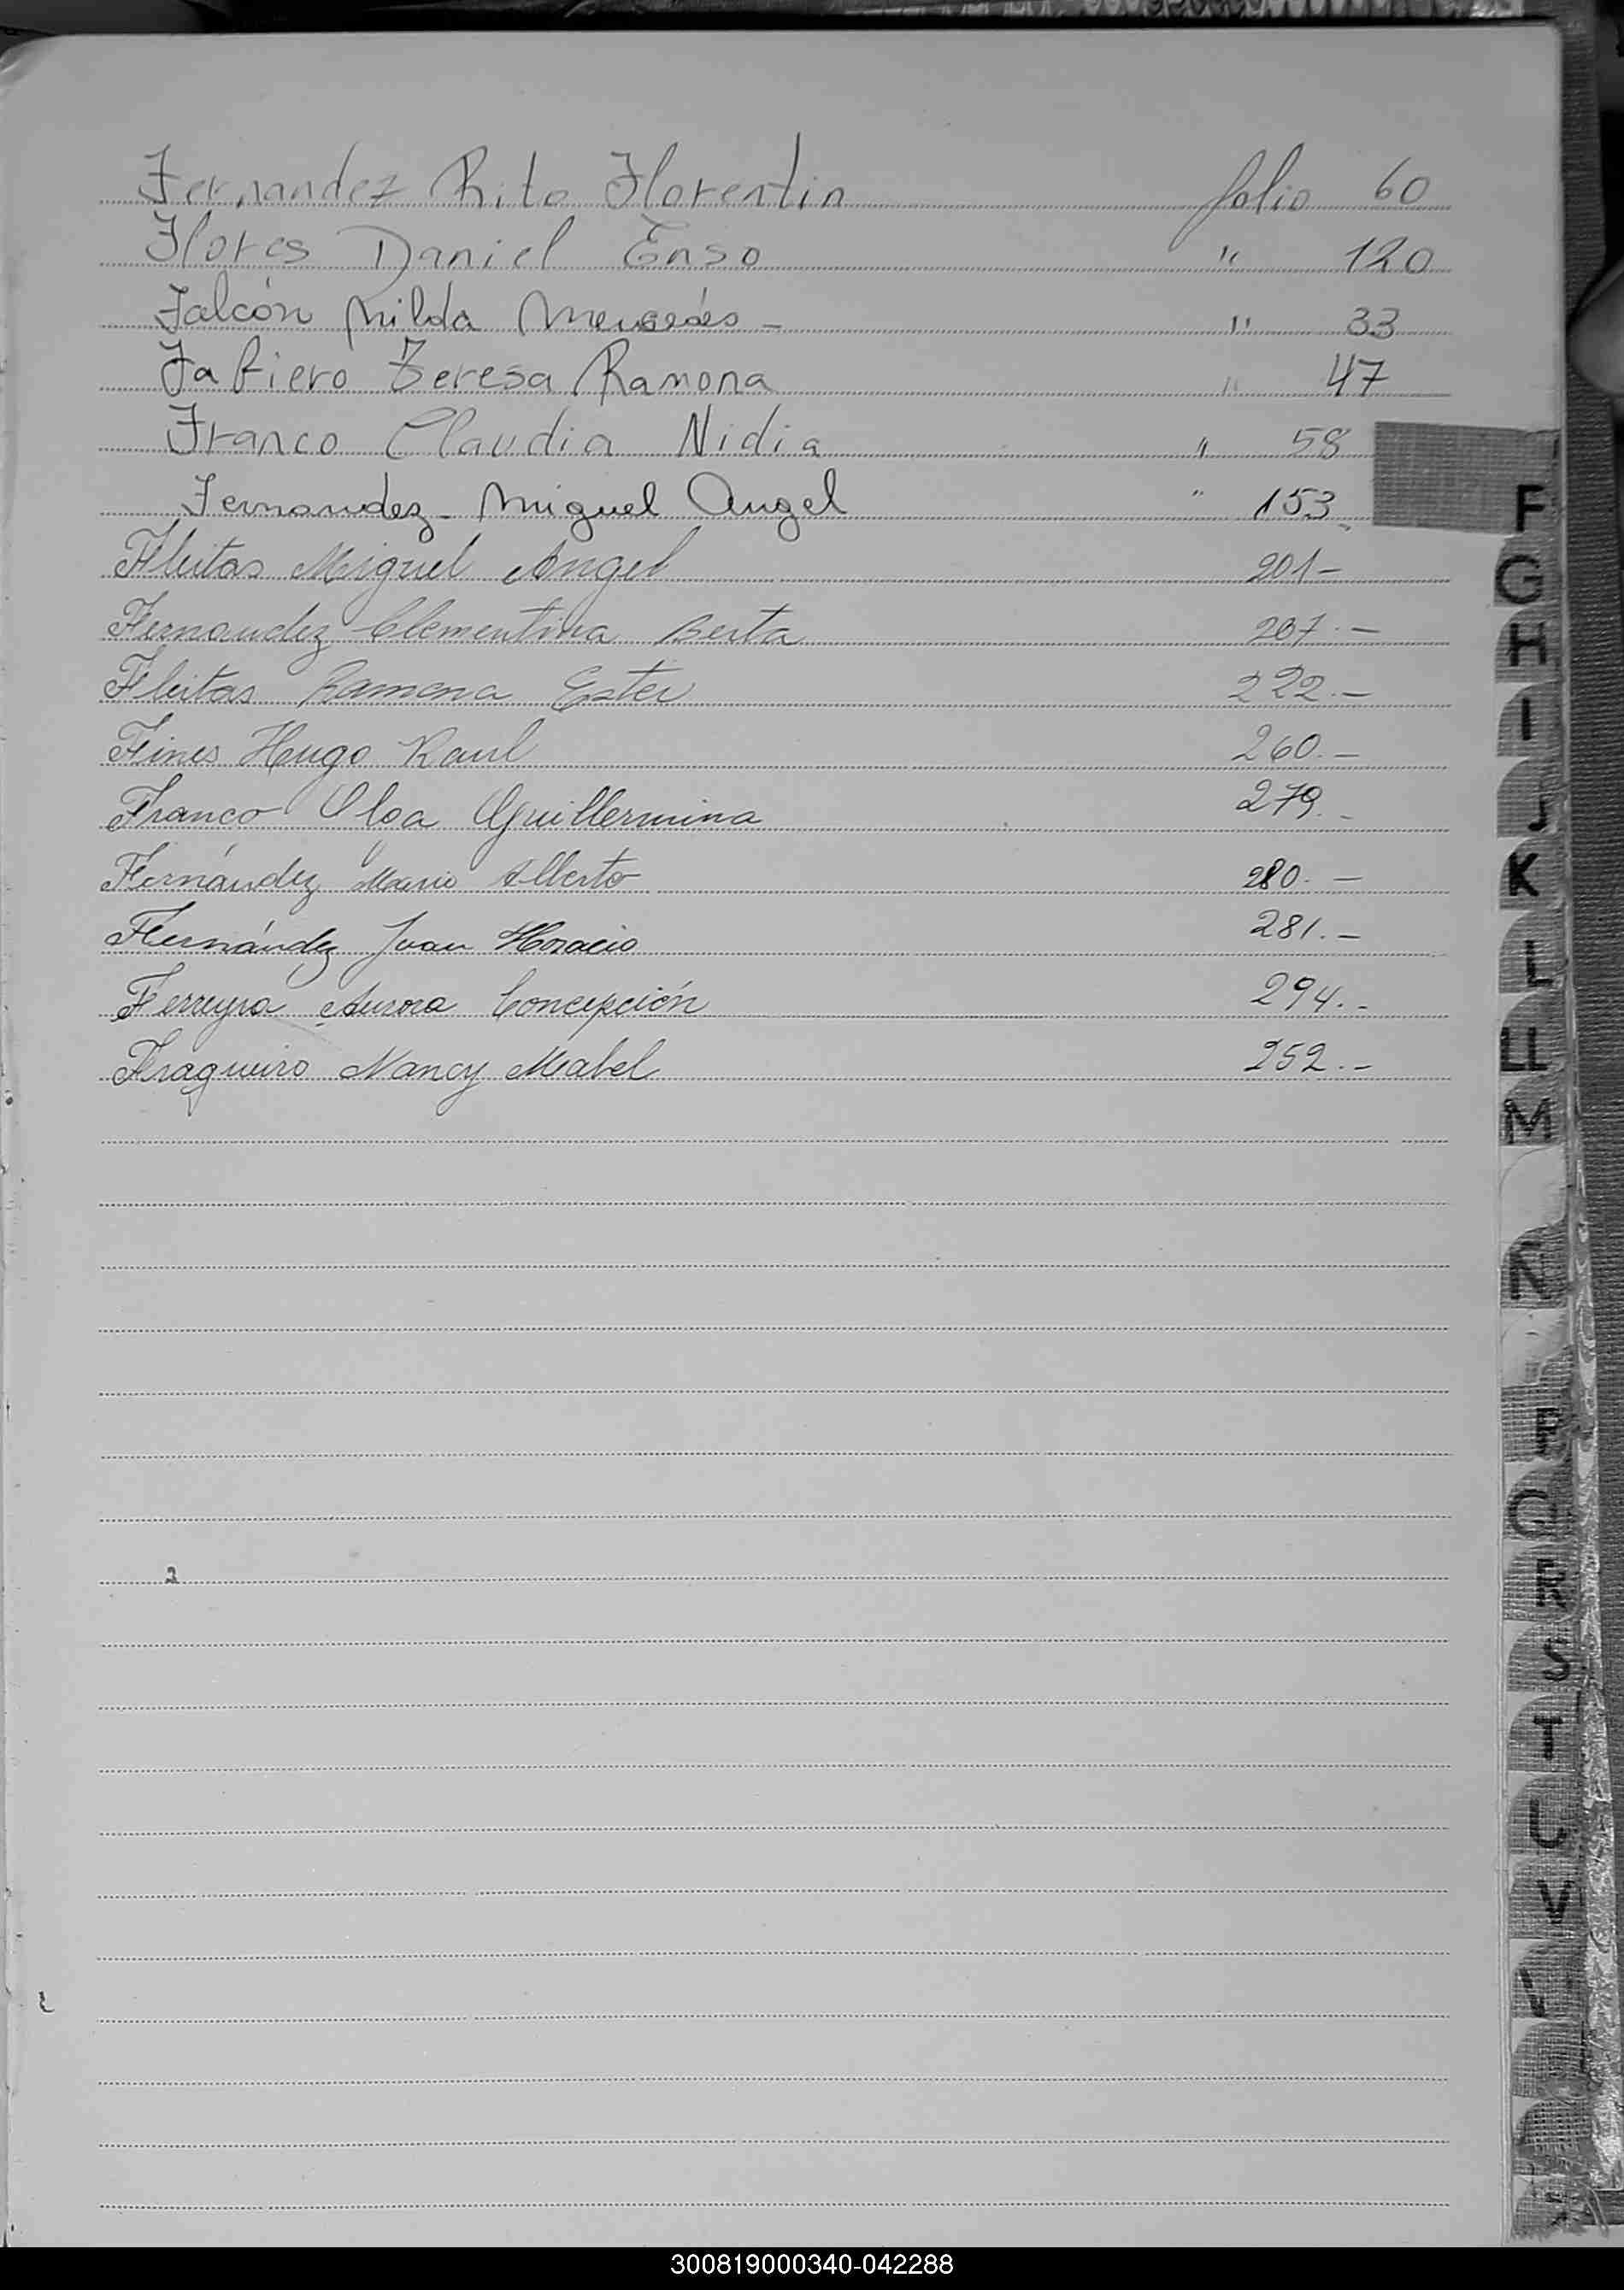 Fernandez Rito Florentin folio 60
Flores Daniel Enso " 120
Falcón Nilda Mercedes - " 33
Fabiero Teresa Ramona " 47
Franco Claudia Nidia " 58
Fernandez - Miguel Angel " 153
Fleitas Miguel Angel 201-
Fernandez Clementina Berta 207.-
Fleitas Ramona Ester 222.-
Fines Hugo Raul 260.-
Franco Olga Guillermina 279.-
Fernández Mario Alberto 280.-
Fernández Juan Horacio 281.-
Ferreyra Aurora Concepción 294.-
Fragueiro Nancy Mabel 252.-
F
G
H
I
J
K
L
LL
M
N
P
Q
R
S
T
U
V
300819000340-042288